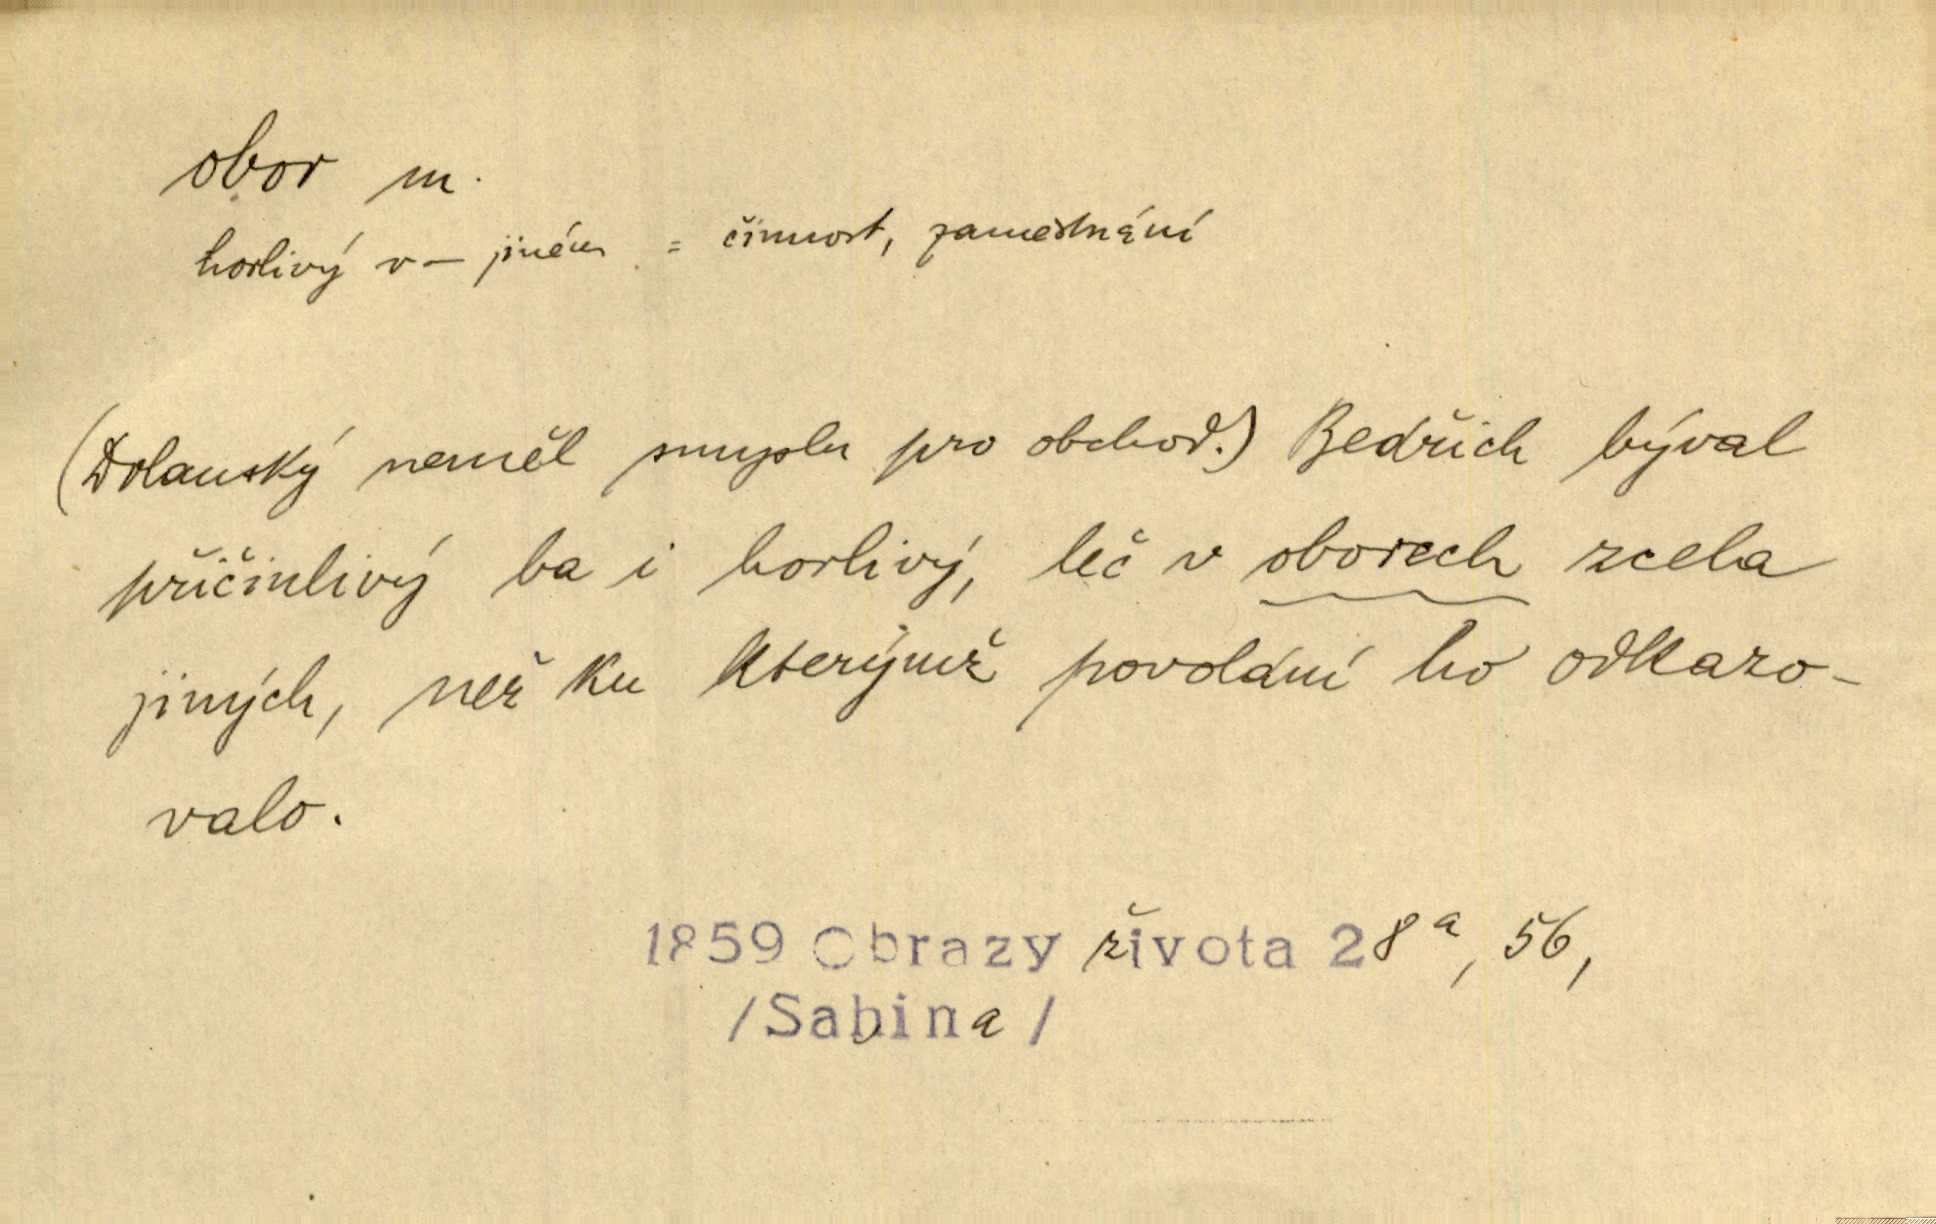 obor m.
horlivý v – jiném = činnost, zaměstnání
(Dolanský neměl smyslu pro obchod.) Bedřich býval
přičinlivý ba i horlivý, leč v oborech zcela
jiných, než ku kterýmž povolání ho odkazo-
valo.
1859 Obrazy života 28a, 56,
/Sabina/